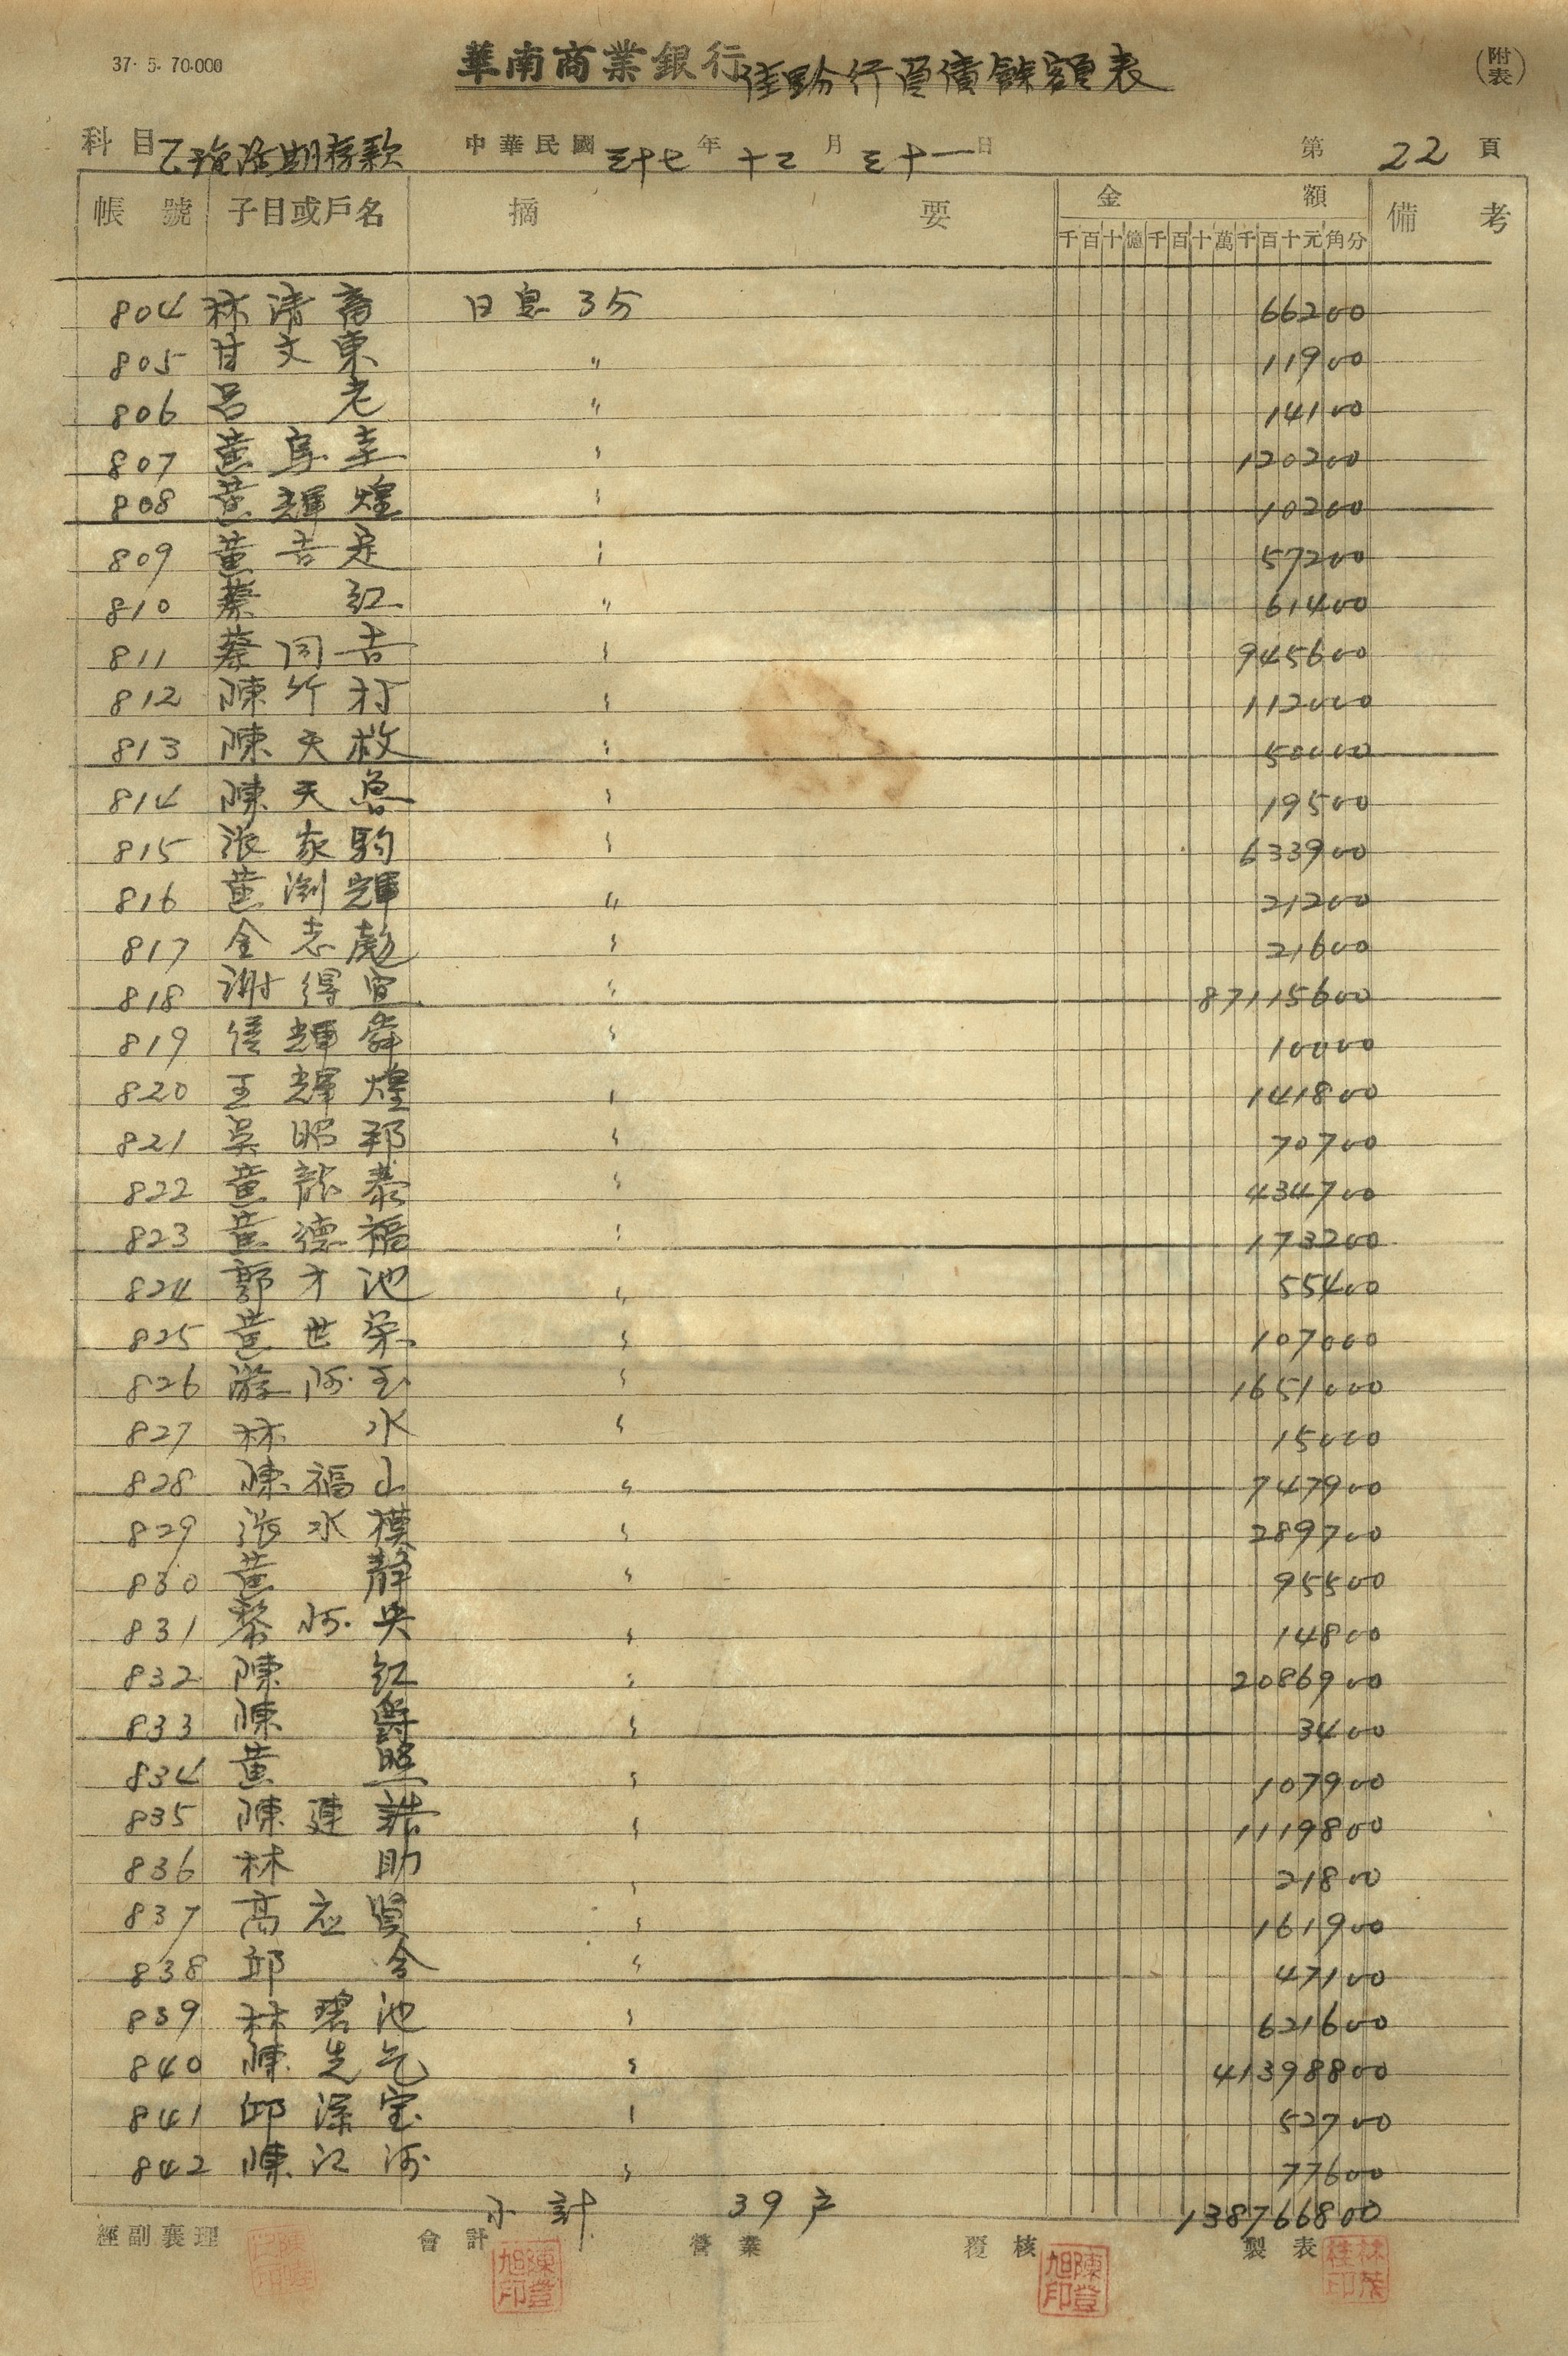 37. 5. 70.000
華南商業銀行 佳里分行負債餘額表
(附表)
科目 乙種活期存款 中華民國 三十七 年 十二 月 三十一 日 第 22 頁
帳號 子目或戶名 摘要 金額 備考
千百十億千百十萬千百十元角分
804 林清 日息3分 66200
805 甘文東 〃 11900
806 呂老 〃 14100
807 黃 〃 120200
808 黃輝煌 〃 10200
809 黃吉定 〃 57200
810 蔡紅 〃 61400
811 蔡同吉 〃 945600
812 陳竹打 〃 112000
813 陳天救 〃 50000
814 陳天魯 〃 19500
815 張家駒 〃 633900
816 黃渊輝 〃 21200
817 金志彪 〃 21600
818 謝得宜 〃 87115600
819 輝舜 〃 10000
820 王輝煌 〃 141800
821 吳昭邦 〃 70700
822 黃龍泰 〃 434700
823 黃德福 〃 173200
824 郭才池 〃 55400
825 黃世榮 〃 107000
826 游阿玉 〃 1651000
827 林水 〃 15000
828 陳福山 〃 747900
829 張水模 〃 289700
830 黃靜 〃 95500
831 黎阿央 〃 14800
832 陳紅 〃 2086900
833 陳爵 〃 3400
834 黃照 〃 107900
835 陳連 〃 1119800
836 林助 〃 21800
837 高應賢 〃 161900
838 邱令 〃 47100
839 林碧池 〃 621600
840 陳先乞 〃 41398800
841 邱深宝 〃 52700
842 陳江河 〃 77600
小計 39戶 138766800
經副襄理 會計 營業 覆核 製表
陳登旭印
陳登旭印
林茂桂印